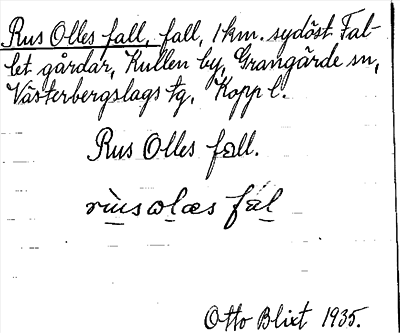 Rus Olles fall, fall, 1 km. sydöst Fal-
let gårdar, Kullen by, Grangärde sn,
Västerbergslags tg. Kopp l.
Rus Olles fall.
rùusωlæs fal
Otto Blixt 1935.